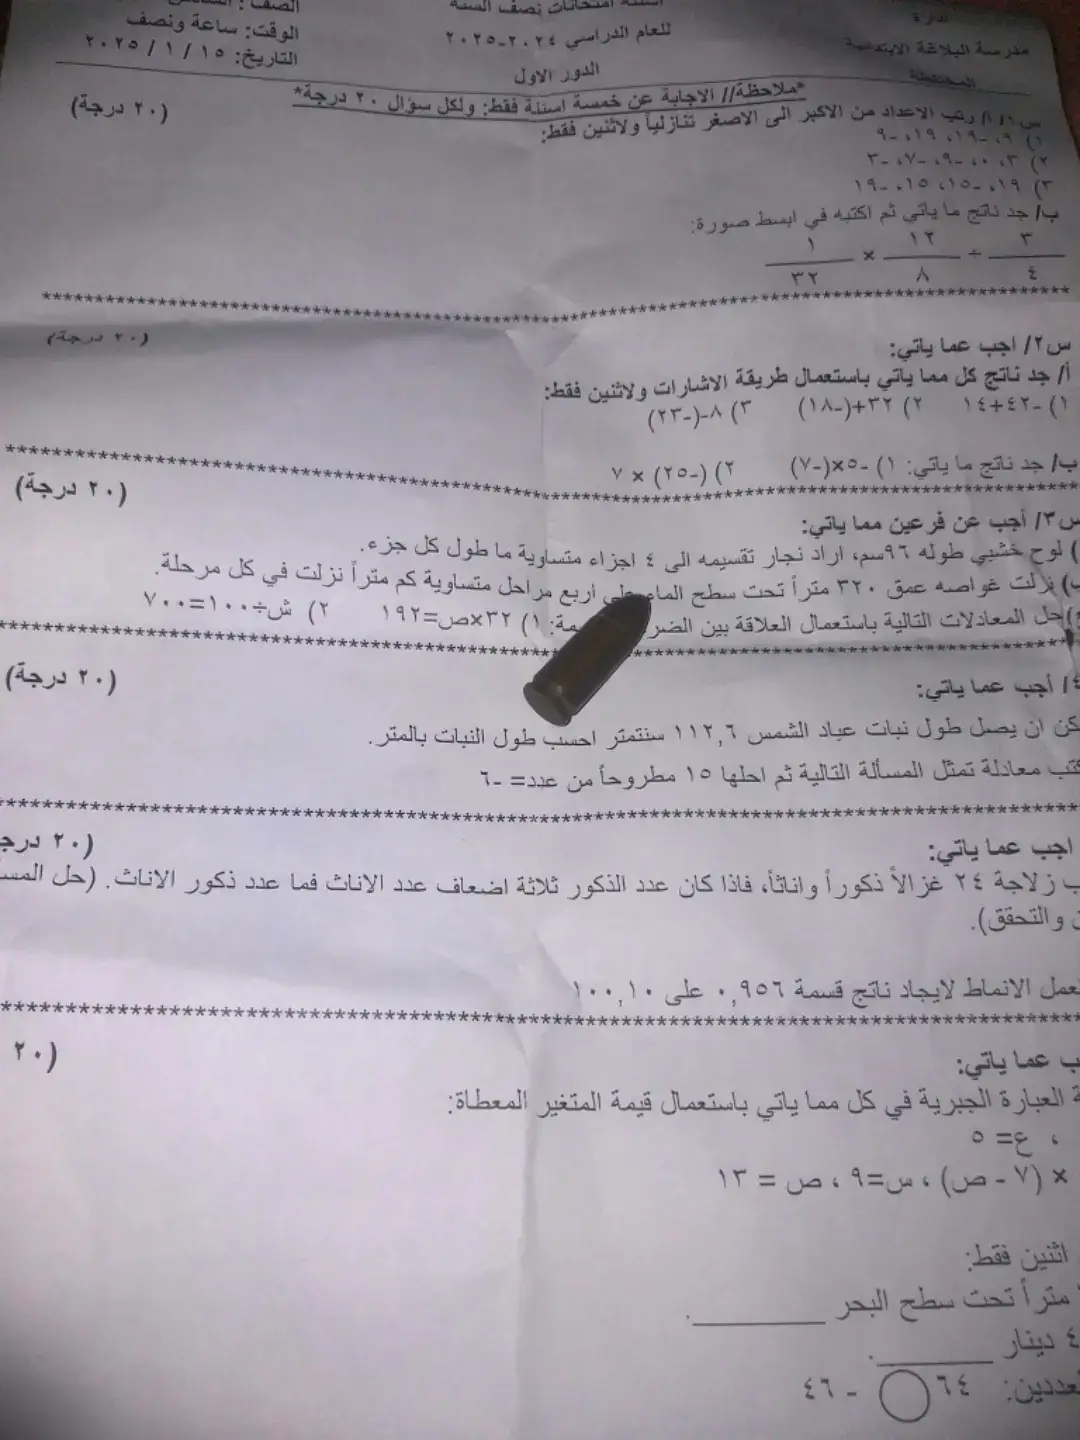 ادارة
مدرسة البلاغة الابتدائية
المختلطة
اسئلة امتحانات نصف السنة
للعام الدراسي ٢٠٢٤-٢٠٢٥
الدور الاول
الصف :
الوقت: ساعة ونصف
التاريخ: ١٥ / ١ / ٢٠٢٥
*ملاحظة// الاجابة عن خمسة اسئلة فقط: ولكل سؤال ٢٠ درجة*
س١/ أ/ رتب الاعداد من الاكبر الى الاصغر تنازلياً ولاثنين فقط: (٢٠ درجة)
١) ٩، -١٩، ١٩، -٩
٢) ٣، ٠، -٩، -٧، -٣
٣) ١٩، -١٥، ١٥، -١٩
ب/ جد ناتج ما ياتي ثم اكتبه في ابسط صورة:
٣/٤ ÷ ١٢/٨ × ١/٣٢
س٢/ اجب عما ياتي: (٢٠ درجة)
أ/ جد ناتج كل مما ياتي باستعمال طريقة الاشارات ولاثنين فقط:
١) -٤٢+١٤ ٢) ٣٢+(-١٨) ٣) ٨-(-٢٣)
ب/ جد ناتج ما ياتي: ١) -٥×(-٧) ٢) (-٢٥) × ٧
س٣/ أجب عن فرعين مما ياتي: (٢٠ درجة)
) لوح خشبي طوله ٩٦سم، اراد نجار تقسيمه الى ٤ اجزاء متساوية ما طول كل جزء.
ب) نزلت غواصه عمق ٣٢٠ متراً تحت سطح الماء على اربع مراحل متساوية كم متراً نزلت في كل مرحلة.
حل المعادلات التالية باستعمال العلاقة بين الضر مة: ١) ٣٢×ص=١٩٢ ٢) ش÷١٠٠=٧٠٠
٤/ أجب عما ياتي: (٢٠ درجة)
كن ان يصل طول نبات عباد الشمس ١١٢,٦ سنتمتر احسب طول النبات بالمتر.
كتب معادلة تمثل المسألة التالية ثم احلها ١٥ مطروحاً من عدد= -٦
اجب عما ياتي: (٢٠ درج
ب زلاجة ٢٤ غزالاً ذكوراً واناثاً، فاذا كان عدد الذكور ثلاثة اضعاف عدد الاناث فما عدد ذكور الاناث. (حل المس
ن والتحقق).
عمل الانماط لايجاد ناتج قسمة ٠,٩٥٦ على ١٠٠,١٠
ب عما ياتي: (٢٠
ة العبارة الجبرية في كل مما ياتي باستعمال قيمة المتغير المعطاة:
، ع= ٥
× (٧ - ص) ، س=٩ ، ص = ١٣
اثنين فقط:
متراً تحت سطح البحر ________.
٤ دينار ________.
عددين: ٦٤ ◯ - ٤٦